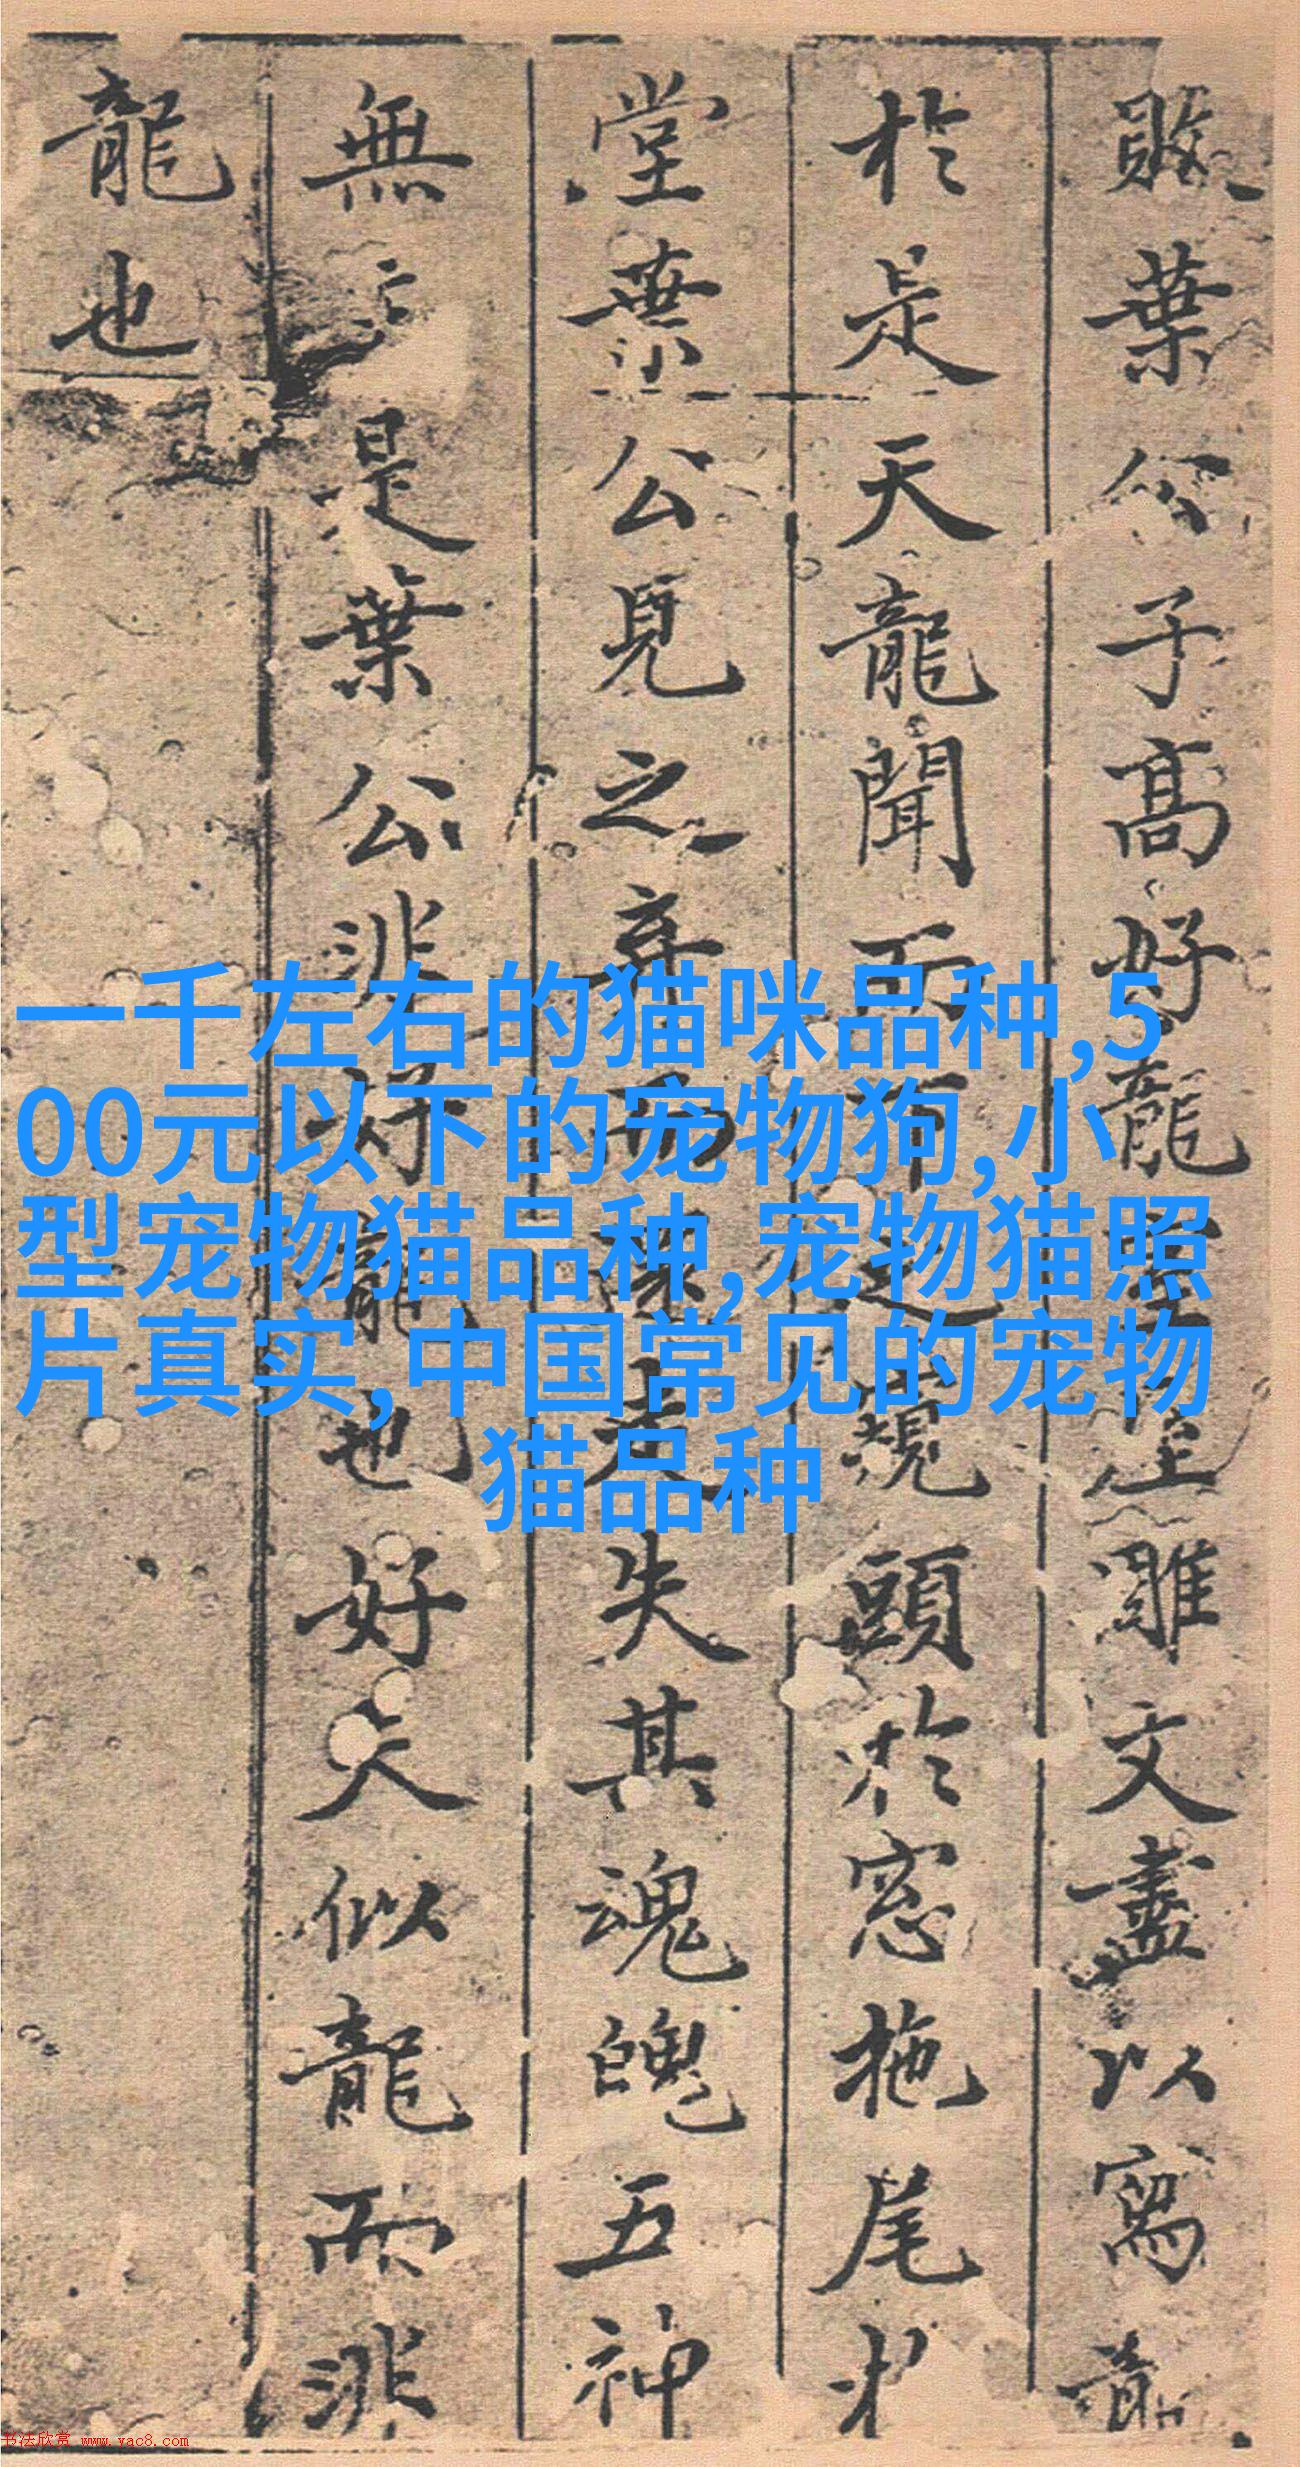 葉公子高好龍雕文盡以寫龍
於是天龍聞而下之窺頭於窓拖尾
堂葉公見之棄而還走失其魂魄五神
無主是葉公非好龍也好夫似龍而非
龍也
一千左右的猫咪品种,5
00元以下的宠物狗,小
型宠物猫品种,宠物猫照
片真实,中国常见的宠物
猫品种
书法欣赏 www.yac8.com